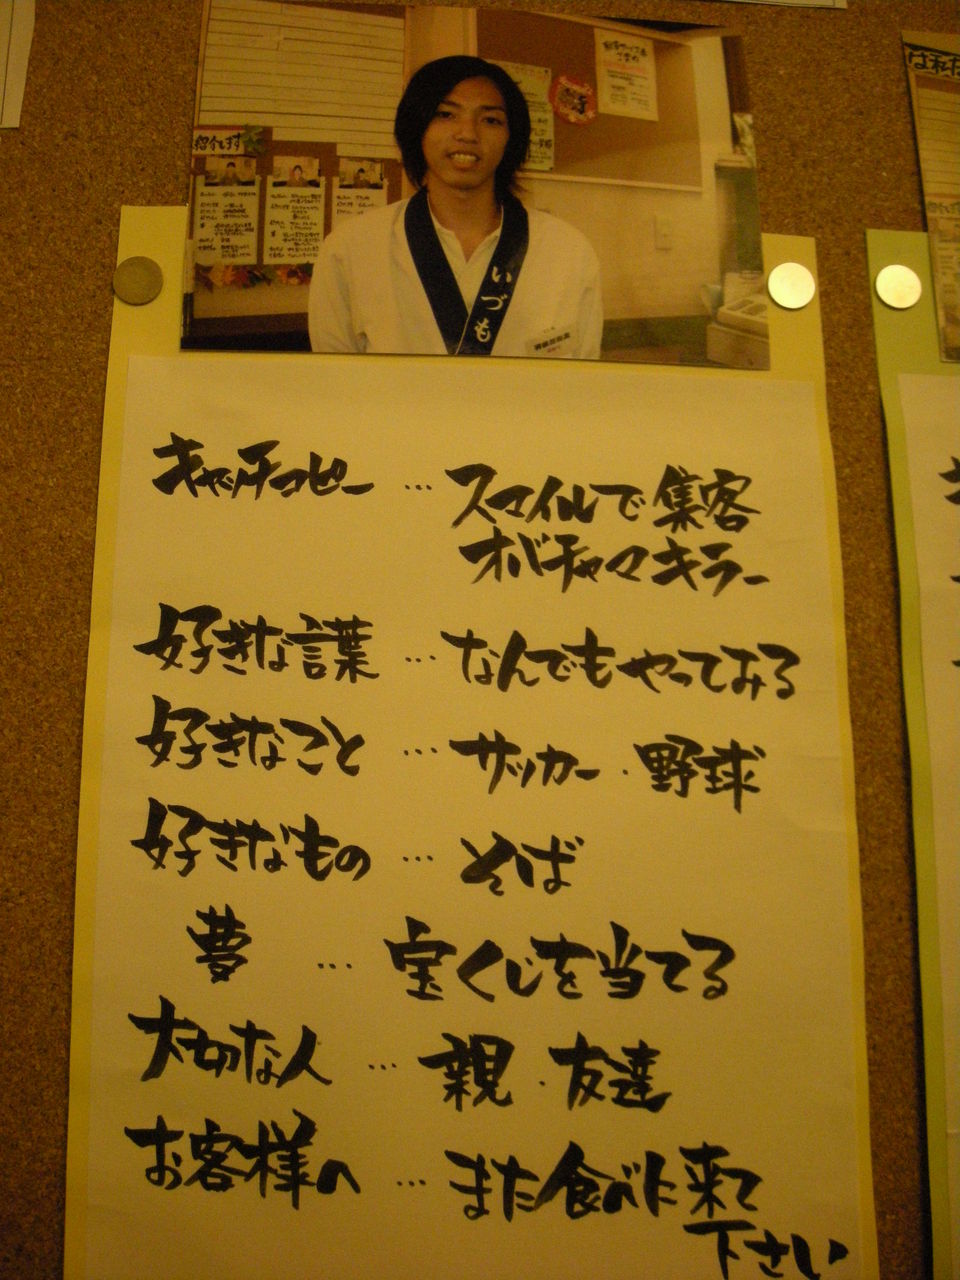 は私た
紹介します
いづも
キャッチコピー … スマイルで集客
オバチャマキラー
好きな言葉 … なんでもやってみる
好きなこと … サッカー・野球
好きなもの … そば
夢 … 宝くじを当てる
大切な人 … 親・友達
お客様へ … また食べに来て
下さい